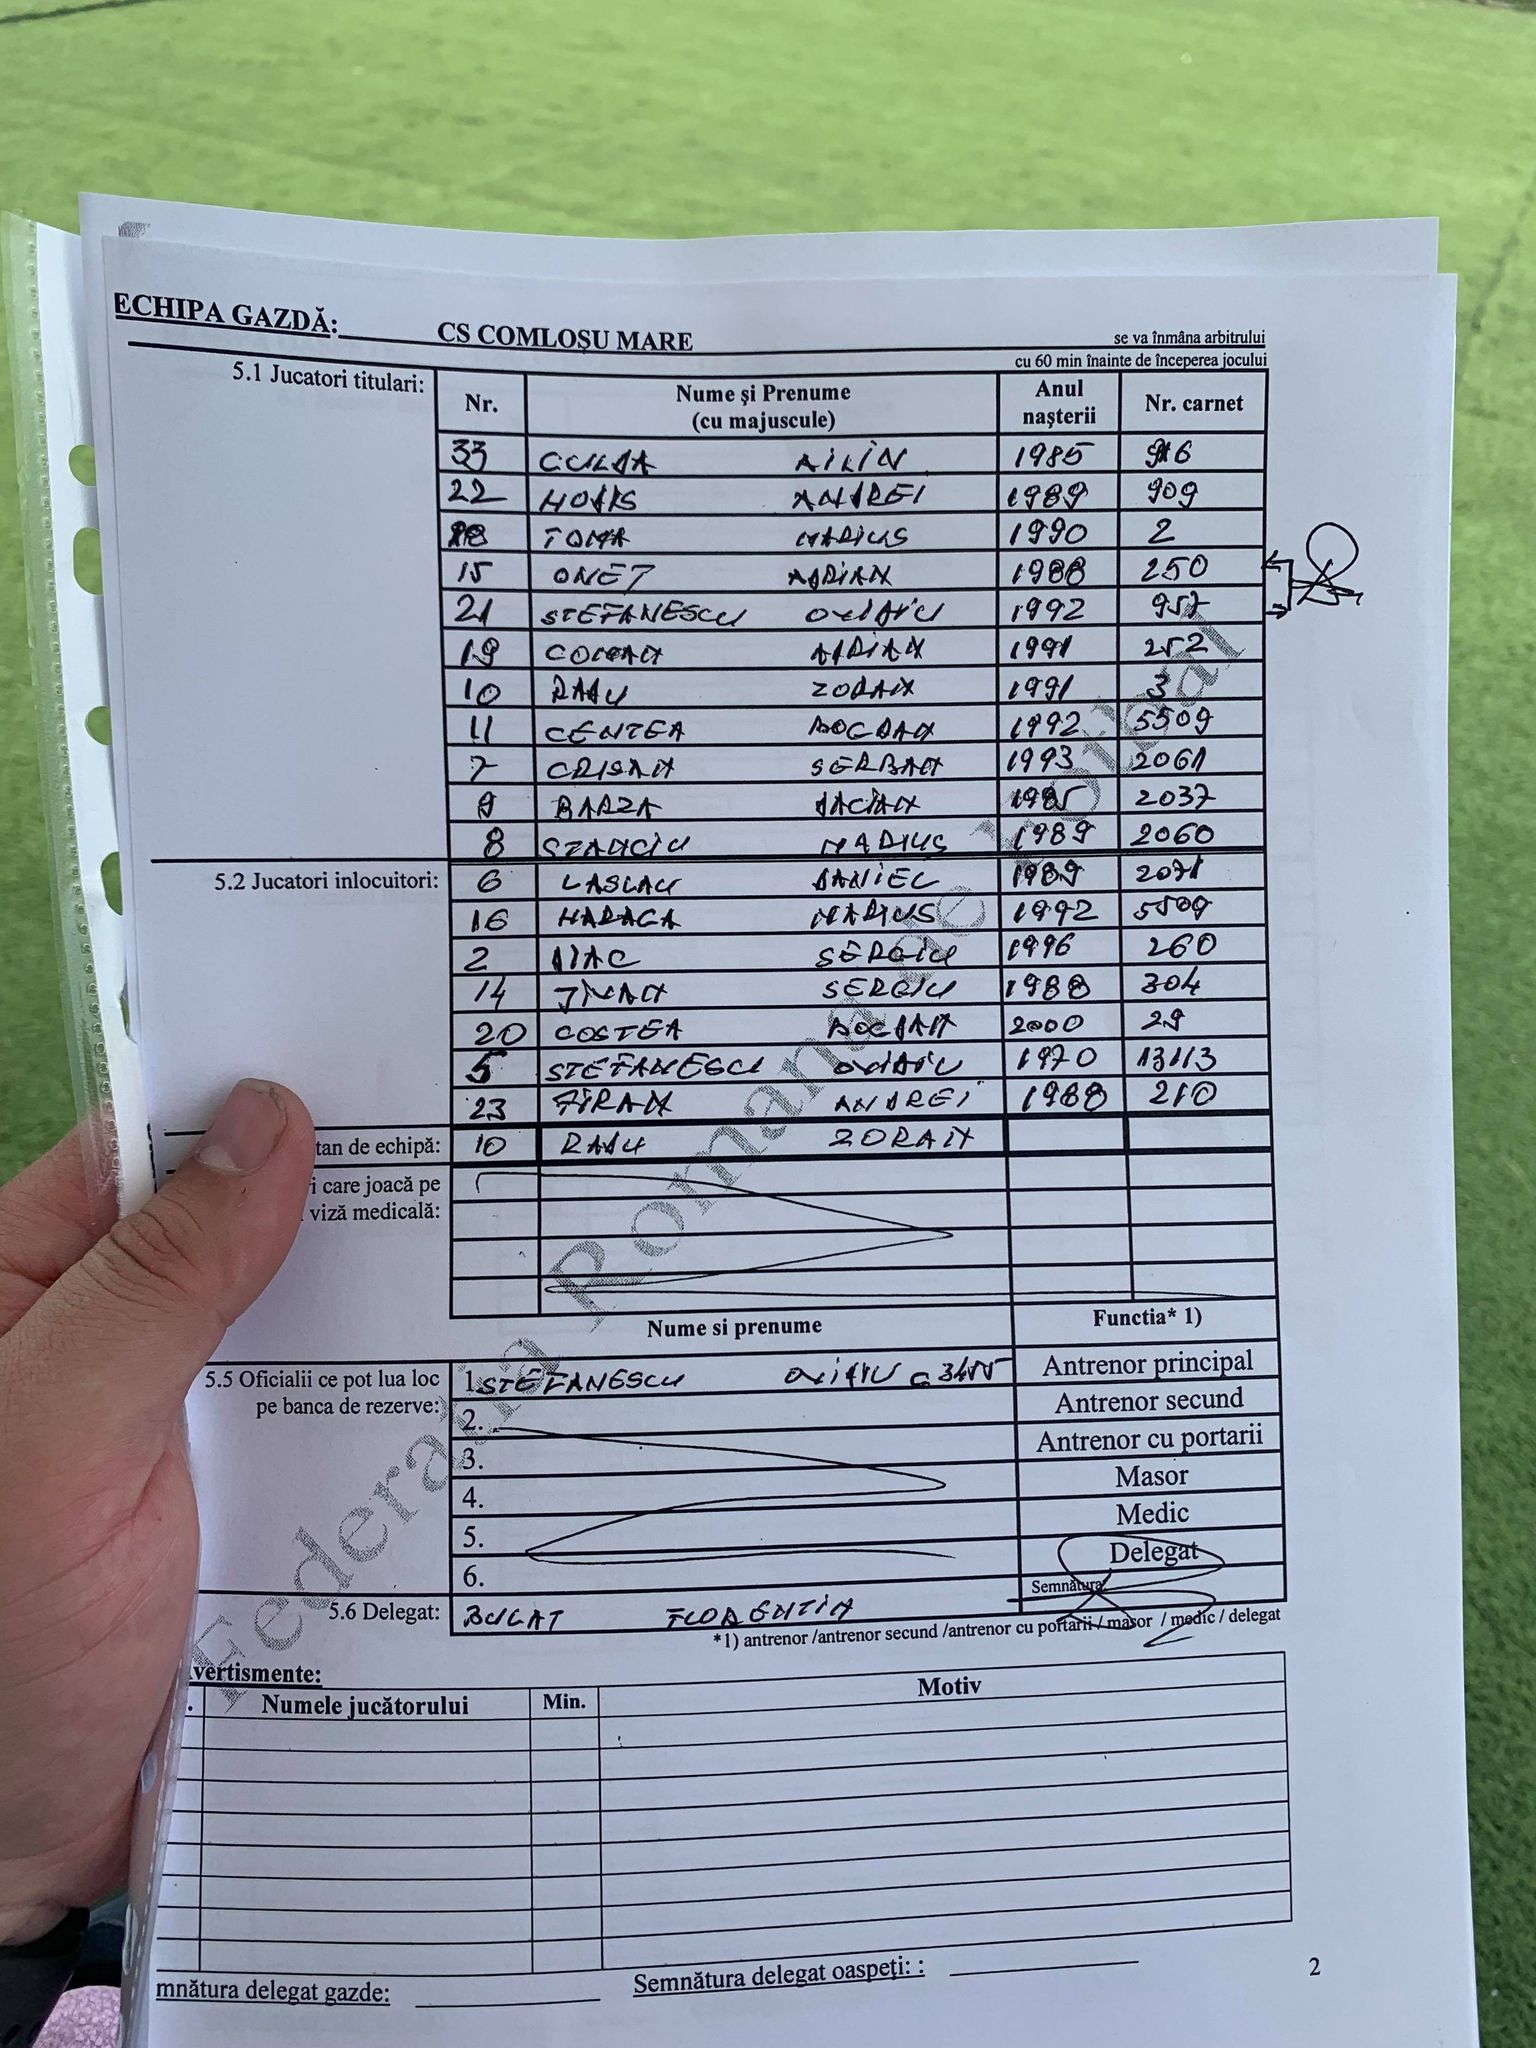 ECHIPA GAZDĂ: CS COMLOȘU MARE
se va înmâna arbitrului
cu 60 min înainte de începerea jocului
5.1 Jucatori titulari:
Nr. Nume și Prenume (cu majuscule) Anul nașterii Nr. carnet
33 1985
22 ANDREI 1989 909
TOMA MARIUS 1990 2
15 ONEȚ ADRIAN 1988 250
21 STEFANESCU OVIDIU 1992 957
19 COMAN ADRIAN 1991 252
10 RADU ZORAN 1991 3
11 CENTEA BOGDAN 1992 5509
7 CRISAN SERBAN 1993 2061
9 BARZA DACIAN 2037
8 STANCIU MARIUS 1989 2060
5.2 Jucatori inlocuitori:
6 LASLAU DANIEL 1989 2071
16 HARAGA MARIUS 1992 5509
2 SERGIU 1996 260
14 JIVAN SERGIU 1988 304
20 COSTEA BOGDAN 2000 29
5 STEFANESCU OVIDIU 1970 13113
23 ANDREI 1988 210
tan de echipă: 10 RADU ZORAN
i care joacă pe
viză medicală:
Nume si prenume Functia* 1)
5.5 Oficialii ce pot lua loc
pe banca de rezerve:
1. STEFANESCU OVIDIU Antrenor principal
2. Antrenor secund
3. Antrenor cu portarii
4. Masor
5. Medic
6. Delegat
5.6 Delegat: BULAT FLORENTIN Semnătura:
*1) antrenor /antrenor secund /antrenor cu portarii / masor / medic / delegat
vertismente:
. Numele jucătorului Min. Motiv
mnătura delegat gazde:
Semnătura delegat oaspeți: :
2
Federația Romana de Fotbal